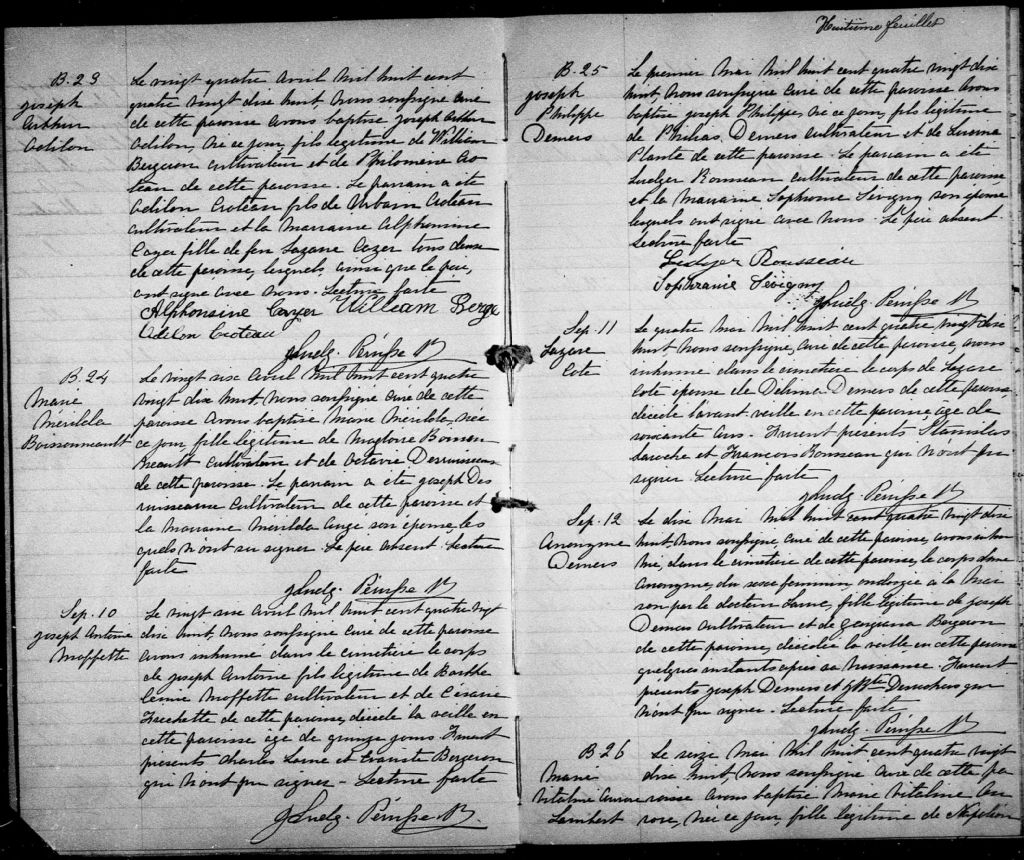 B. 23
Joseph
Arthur
Odilon
Le vingt quatre avril mil huit cent
quatre vingt dix huit, nous soussigné curé
de cette paroisse avons baptisé Joseph Arthur
Odilon, né ce jour, fils légitime de William
Bergeron cultivateur et de Philomène Cro
teau de cette paroisse. Le parrain a été
Odilon Croteau fils de Urbain Croteau
cultivateur et la marraine Alphonsine
Cayer fille de feu Lazare Cayer tous deux
de cette paroisse, lesquels, ainsi que le père,
ont signé avec nous. Lecture faite
Alphonsine Cayer William Berge
Odilon Croteau
J Ludg. Péri
B. 24
Marie
Mérilda
Boissonneault
Le vingt six avril mil huit cent quatre
vingt dix huit, nous soussigné curé de cette
paroisse avons baptisé Marie Mérilda, née
ce jour, fille légitime de Magloire Boisson
neault cultivateur et de Octavie Desruisseaux
de cette paroisse. Le parrain a été Joseph Des
ruisseaux cultivateur de cette paroisse et
la marraine Mérilda son épouse les
quels n'ont su signer. Le père absent. Lecture
faite
J Ludg.
Sep. 10
Joseph Antoine
Moffette
Le vingt six avril mil huit cent quatre vingt
dix huit, nous soussigné curé de cette paroisse
avons inhumé dans le cimetière le corps
de Joseph Antoine fils légitime de Barthé
lemie Moffette cultivateur et de Césarie
Frechette de cette paroisse, décédé la veille en
cette paroisse âgé de quinze jours. Furent
présents Charles et Evariste Bergeron
qui n'ont pu signer - Lecture faite
J Ludg.
Huitième feuillet
B. 25
Joseph
Philippe
Demers
Le premier mai mil huit cent quatre vingt dix
huit, nous soussigné curé de cette paroisse avons
baptisé Joseph Philippe, né ce jour, fils légitime
de Philéas Demers cultivateur et de
Plante de cette paroisse. Le parrain a été
Ludger Rousseau cultivateur de cette paroisse
et la marraine Sophronie Sévigny son épouse
lesquels ont signé avec nous. Le père absent.
Lecture faite
Ludger Rousseau
Sophranie Sévigny
J Ludg.
Sep. 11
Lazare
Coté
Le quatre mai mil huit cent quatre vingt dix
huit nous soussigné, curé de cette paroisse, avons
inhumé dans le cimetière le corps de Lazare
Coté époux de Délima Demers de cette paroisse,
décédé l'avant veille en cette paroisse âgé de
soixante ans. Furent présents Stanislas
Laroche et Francois Rousseau qui n'ont pu
signer. Lecture faite
J Ludg.
Sep. 12
Anonyme
Demers
Le dix mai mil huit cent quatre vingt dix
huit, nous soussigné, curé de cette paroisse, avons inhu
mé, dans le cimetière de cette paroisse, le corps d'une
anonyme, du sexe féminin ondoyée à la mai
son par le docteur, fille légitime de Joseph
Demers cultivateur et de Georgiana Bergeron
de cette paroisse, décédée la veille en cette paroisse
quelques instants après sa naissance. Furent
présents Joseph Demers et qui
n'ont pu signer. Lecture faite
J Ludg.
B. 26
Marie
Vitaline Aurore
Lambert
Le seize mai mil huit cent quatre vingt
dix huit, nous soussigné curé de cette pa
roisse avons baptisé Marie Vitaline Au
rore, née ce jour, fille légitime de Napoléon